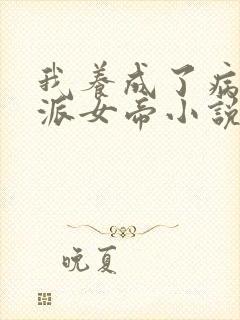 我養成了病
派女帝小說
晚夏